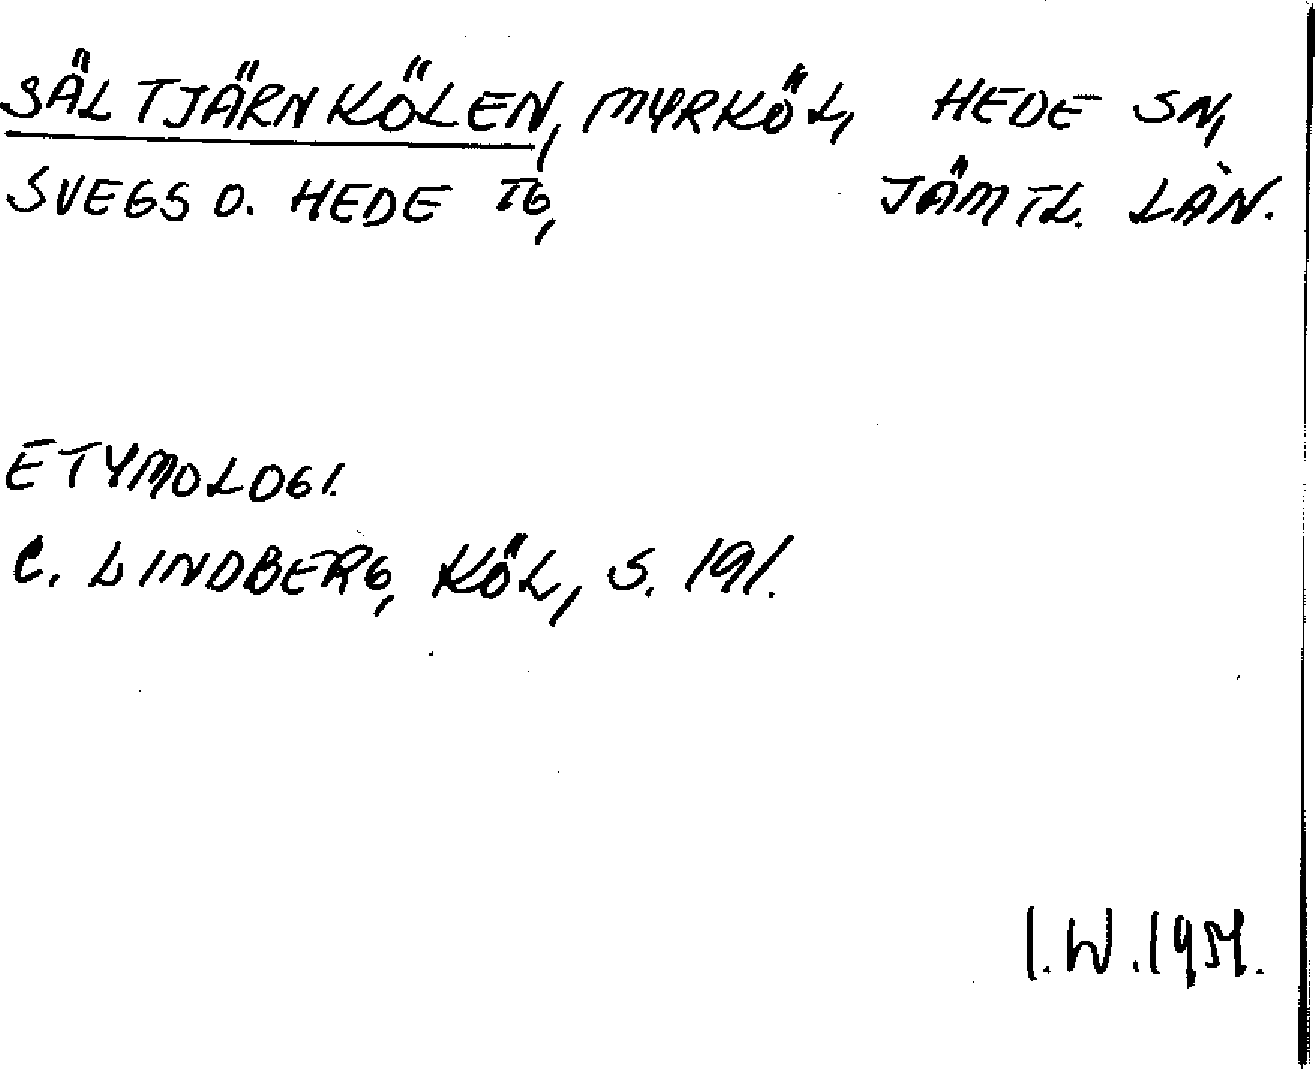 SÄLTJÄRNKÖLEN, MYRKÖL, HEDE SN,
SVEGS O. HEDE TG, JÄMTL. LÄN.
ETYMOLOGI.
C. LINDBERG, KÖL, S. 191.
I.W.